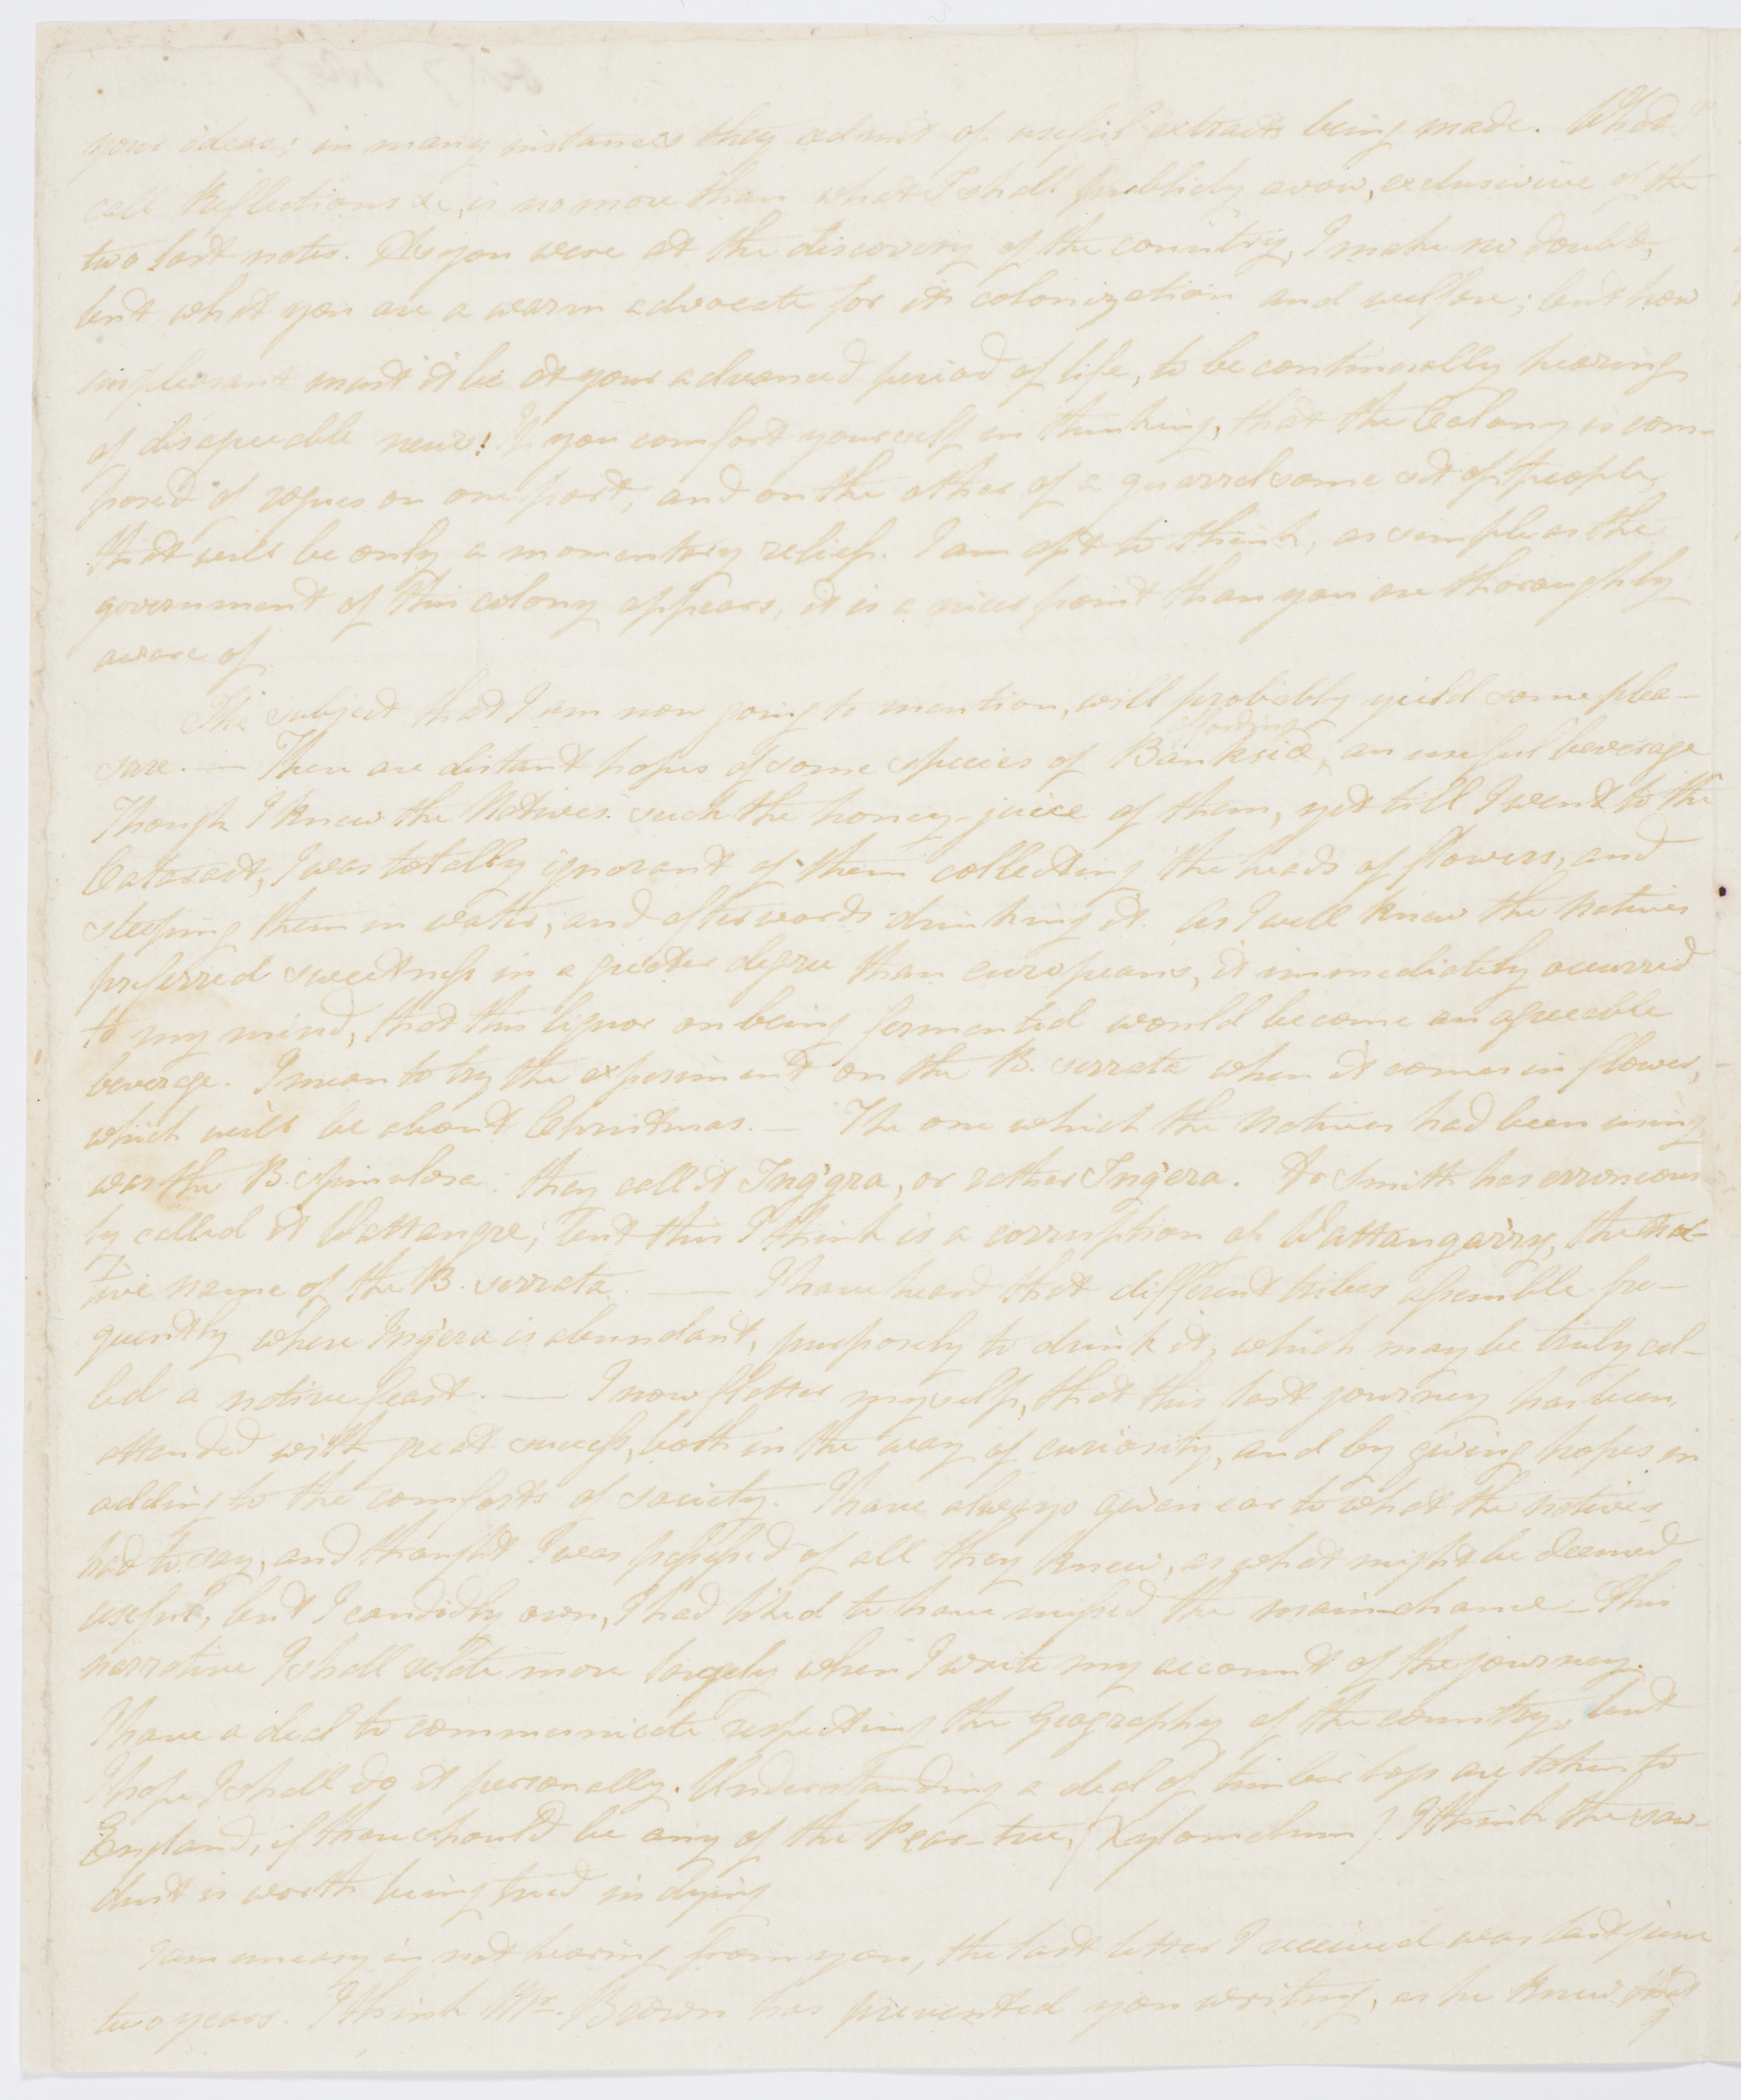 your ideas; in many instances they admit of useful extracts being made. What I
call Reflections &c, is no more than what I shall publicly avow, exclusive of the
two last notes. As you were at the discovery of the country, I make no doubt,
but what you are a warm advocate for its colonization and welfare; but how
unpleasant must it be at your advanced period of life, to be continually hearing
of disagreeable news! If you comfort yourself in thinking, that the Colony is com-
posed of rogues on one part, and on the other of a quarrelsome set of people,
that will be only a momentary relief. I am apt to think, as simple as the
government of this colony appears, it is a nicer point than you are thoroughly
aware of.
The subject that I am now going to mention, will probably yield some plea-
sure. — There are distant hopes of some species of Banksia affording an useful beverage
Though I knew the Natives suck the honey-juice of them, yet till I went to the
Cataract, I was totally ignorant of them collecting the heads of flowers, and
steeping them in water, and afterwards drinking it. As I well knew the natives
preferred sweetness in a greater degree than europeans, it immediately occurred
to my mind, that this liquor on being fermented would become an agreeable
beverage. I mean to try the experiment on the B. serrata when it comes in flower,
which will be about Christmas. — The one which the natives had been using
was the B. spinulosa: they call it Ing'gra, or rather Ing'era. Dr Smith has erroneous
ly called it Wattangre; but this I think is a corruption of Wattangarry, the na-
tive name of the B. serrata. — I have heard that different tribes assemble fre-
quently where Ing'era is abundant, purposely to drink it, which may be truly cal-
led a native feast. — I now flatter myself, that this last journey has been
attended with great success, both in the way of curiosity, and by giving hopes in
adding to the comforts of society. I have always given ear to what the natives
had to say, and thought I was possessed of all they knew, as what might be deemed
useful, but I candidly own, I had liked to have missed the main-chance — This
narrative I shall relate more largely when I write my account of the journey.
I have a deal to communicate respecting the Geography of the country, but
I hope I shall do it personally. Understanding a deal of timber logs are taken to
England, if there should be any of the Pear-tree, (Xylomelum) I think the saw-
dust is worth being tried in dying
I am uneasy in not hearing from you, the last letter I received was last june
two years. I think Mr. Brown has prevented you writing, as he knew that